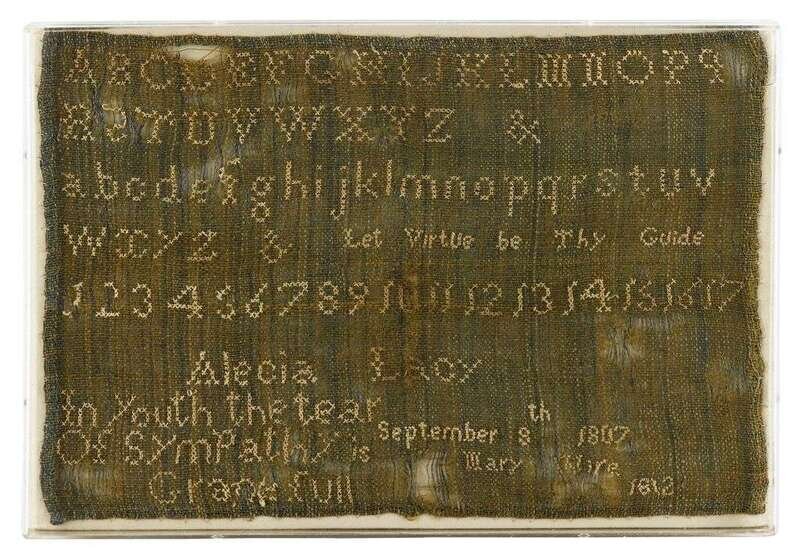 A B C D E F G H I J K L M N O P Q
R S T U V W X Y Z &
a b c d e f g h i j k l m n o p q r s t u v
W X Y Z & Let Virtue be Thy Guide
1 2 3 4 5 6 7 8 9 10 11 12 13 14 15 16 17
Alecia Lacy
In Youth the tear
Of Sympathy is
Gracefull
September 8th 1807
Mary
1812